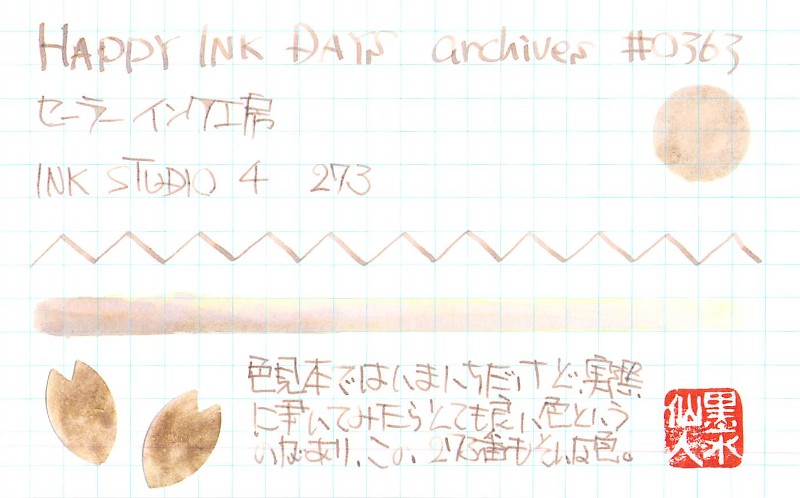 HAPPY INK DAYS archives #0363
セーラーインク工房
INK STUDIO 4 273
色見本ではいまいちだけど、実際
に書いてみたらとても良い色という
のがあり、この、273番もそんな色。
墨水
仙人